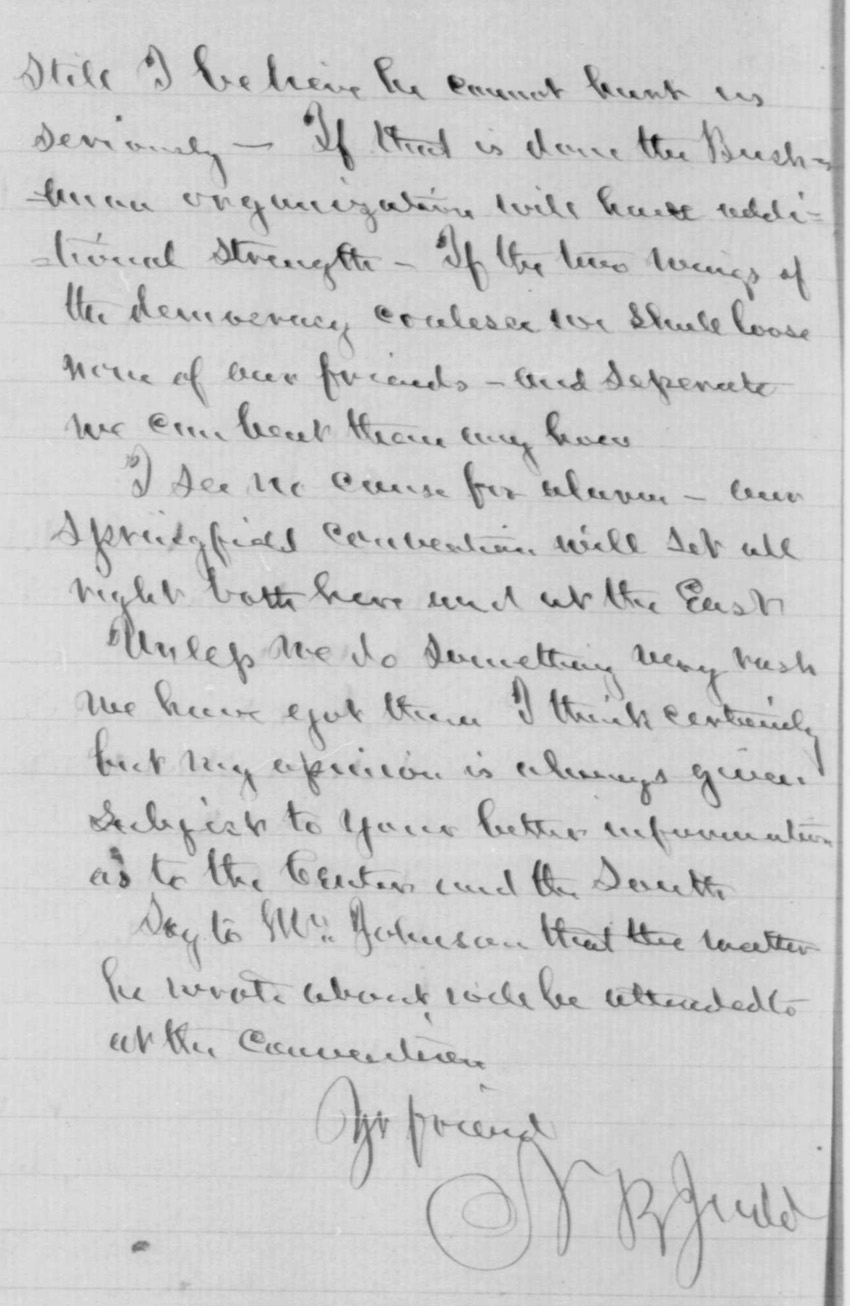 Still I believe he cannot hurt us
seriously — If that is done the Buch=
-anan organization will have addi=
=tional strength — If the two wings of
the democracy coalesce we shall loose
none of our friends — and seperate
we can beat them any how
I see no cause for alarm — our
Springfield convention will set all
right both here and at the East
Unless we do something very rash
we have got them I think certainly
but my opinion is always given
subject to your better information
as to the Center and the South
Say to Mr. Johnson that the matter
he wrote about, will be attended to
at the Convention
Yr friend
N B Judd